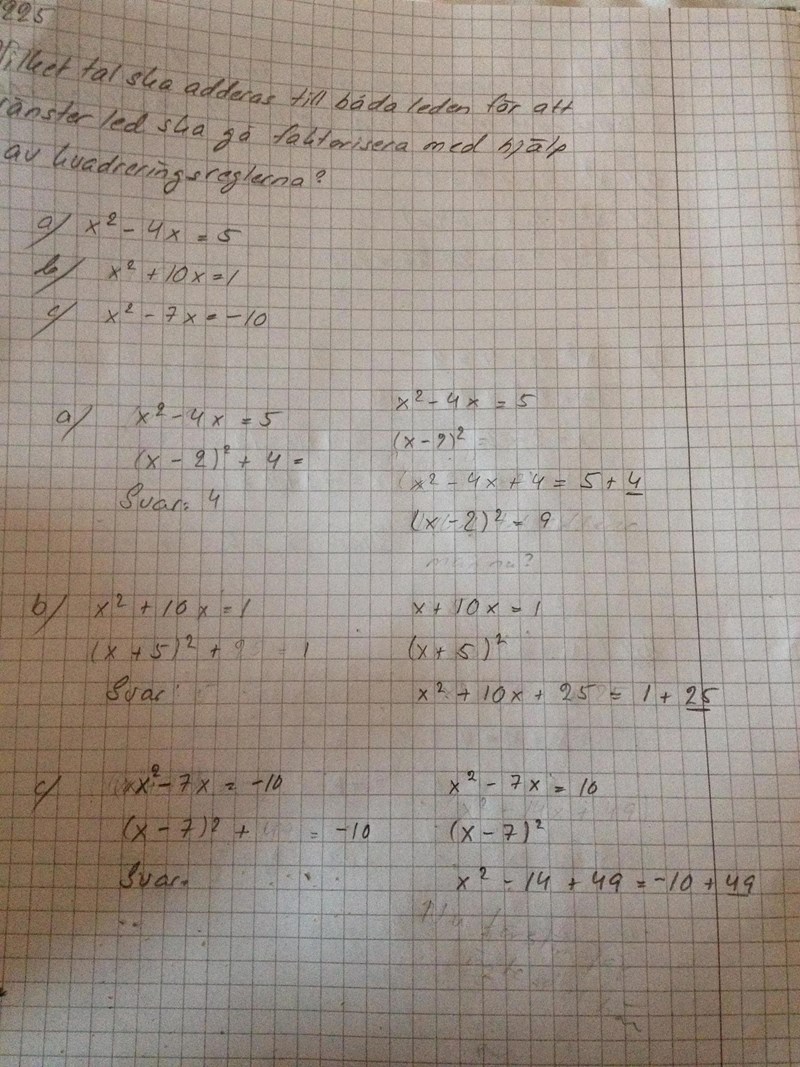 225
Vilket tal ska adderas till båda leden för att
vänster led ska gå faktorisera med hjälp
av kvadreringsreglerna?
a) x² - 4x = 5
b) x² + 10x = 1
c) x² - 7x = -10
a) x² - 4x = 5
(x - 2)² + 4 =
Svar: 4
x² - 4x = 5
(x - 2)²
(x² - 4x + 4 = 5 + 4
(x - 2)² = 9
b) x² + 10x = 1
(x + 5)² + 25 = 1
Svar:
x + 10x = 1
(x + 5)²
x² + 10x + 25 = 1 + 25
c) x² - 7x = -10
(x - 7)² + = -10
Svar:
x² - 7x = 10
(x - 7)²
x² - 14 + 49 = -10 + 49